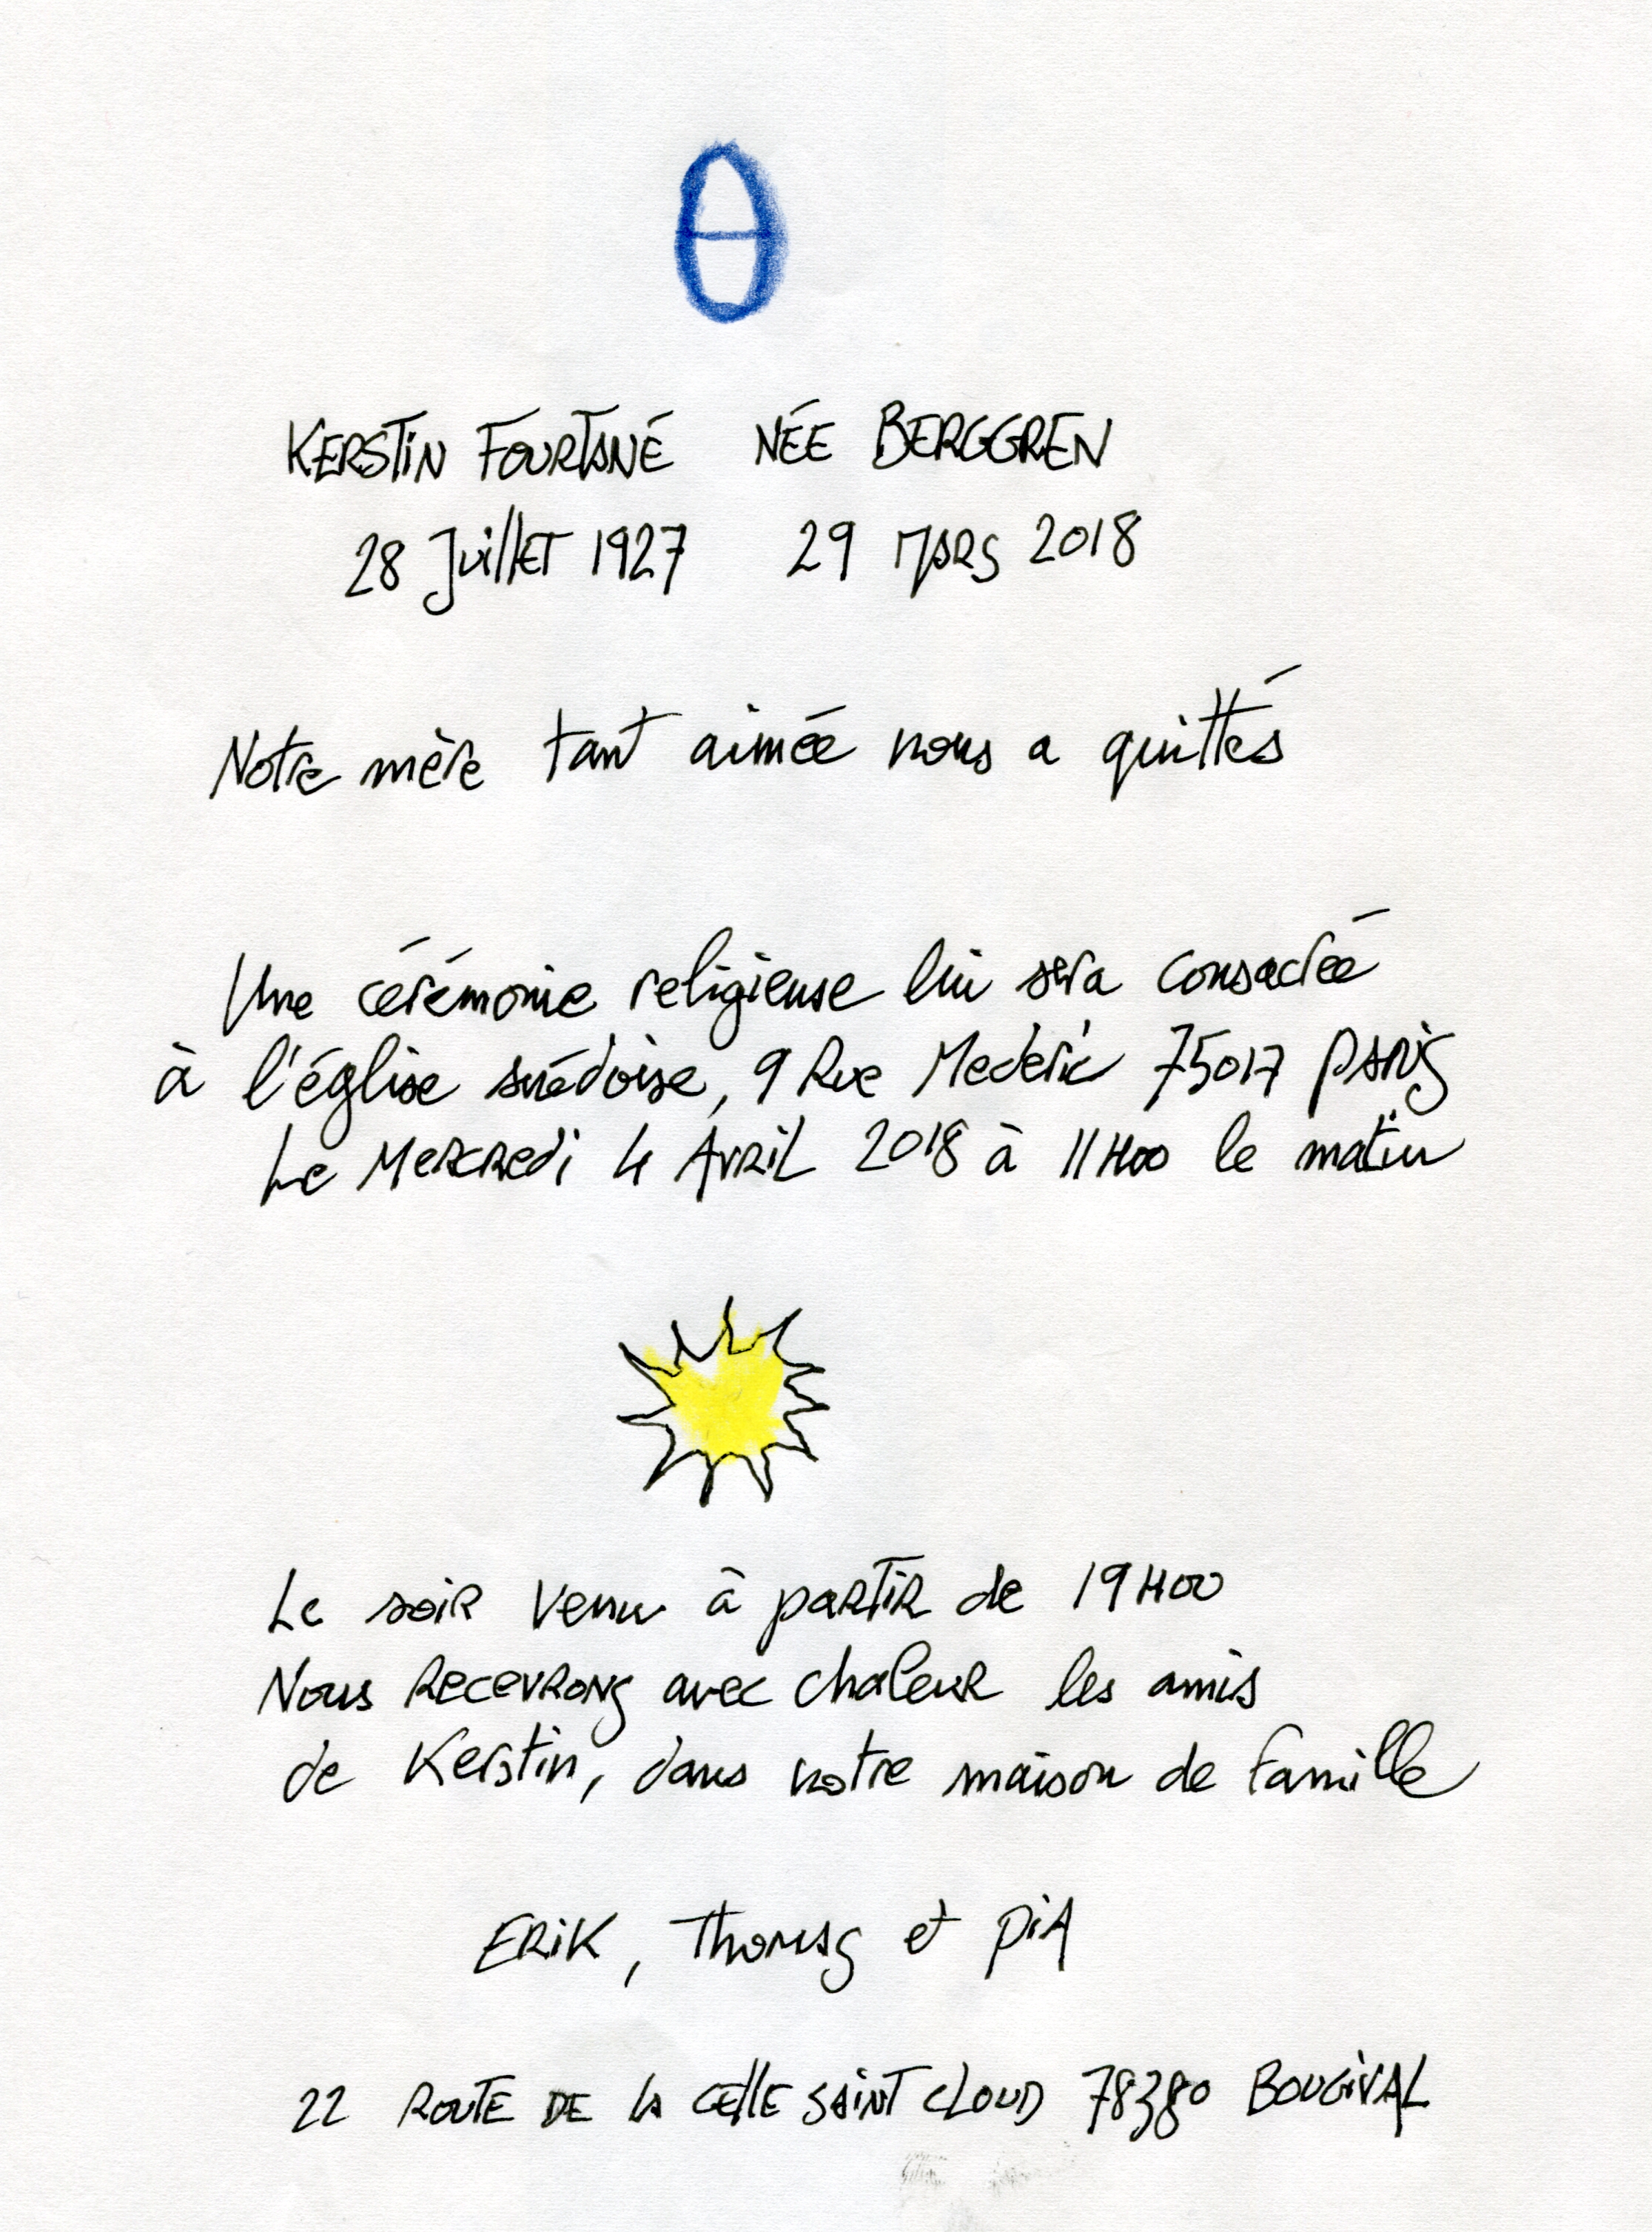 KERSTIN FOURTANÉ NÉE BERGGREN
28 Juillet 1927 29 Mars 2018
Notre mère tant aimée nous a quittés
Une cérémonie religieuse lui sera consacrée
à l'église suédoise, 9 Rue Mederic 75017 PARIS
Le Mercredi 4 Avril 2018 à 11H00 le matin
Le soir venu à partir de 19H00
Nous recevrons avec chaleur les amis
de Kerstin, dans notre maison de famille
ERIK, Thomas et PIA
22 ROUTE DE LA CELLE SAINT CLOUD 78380 BOUGIVAL